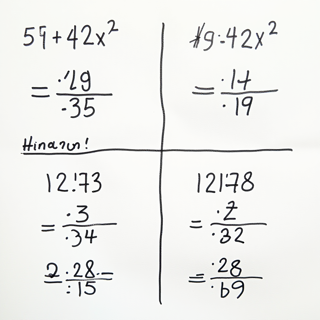 59+42x²
=·29/·35
#9:42x²
=·14/·19
12!73
=·3/·34
=2·28–/:15
12178
=·Z/·32
=·28/·69